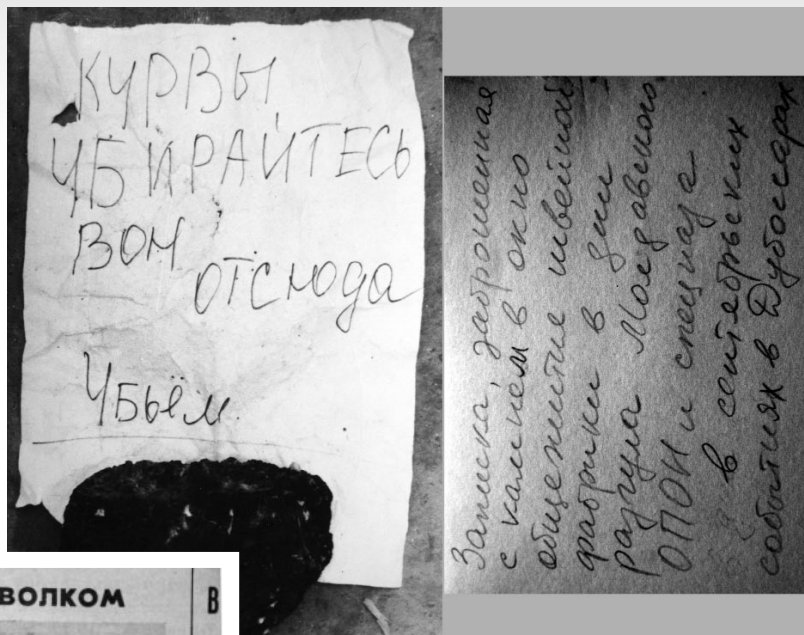 КУРВЫ
УБИРАЙТЕСЬ
ВОН
ОТСЮДА
Убьём
ВОЛКОМ
В
Записка, заброшенная
с камнем в окно
общежитие швейной
фабрики в дни
разгула Молдавского
ОПОН и спецназа
в сентябрьских
событиях в Дубоссарах